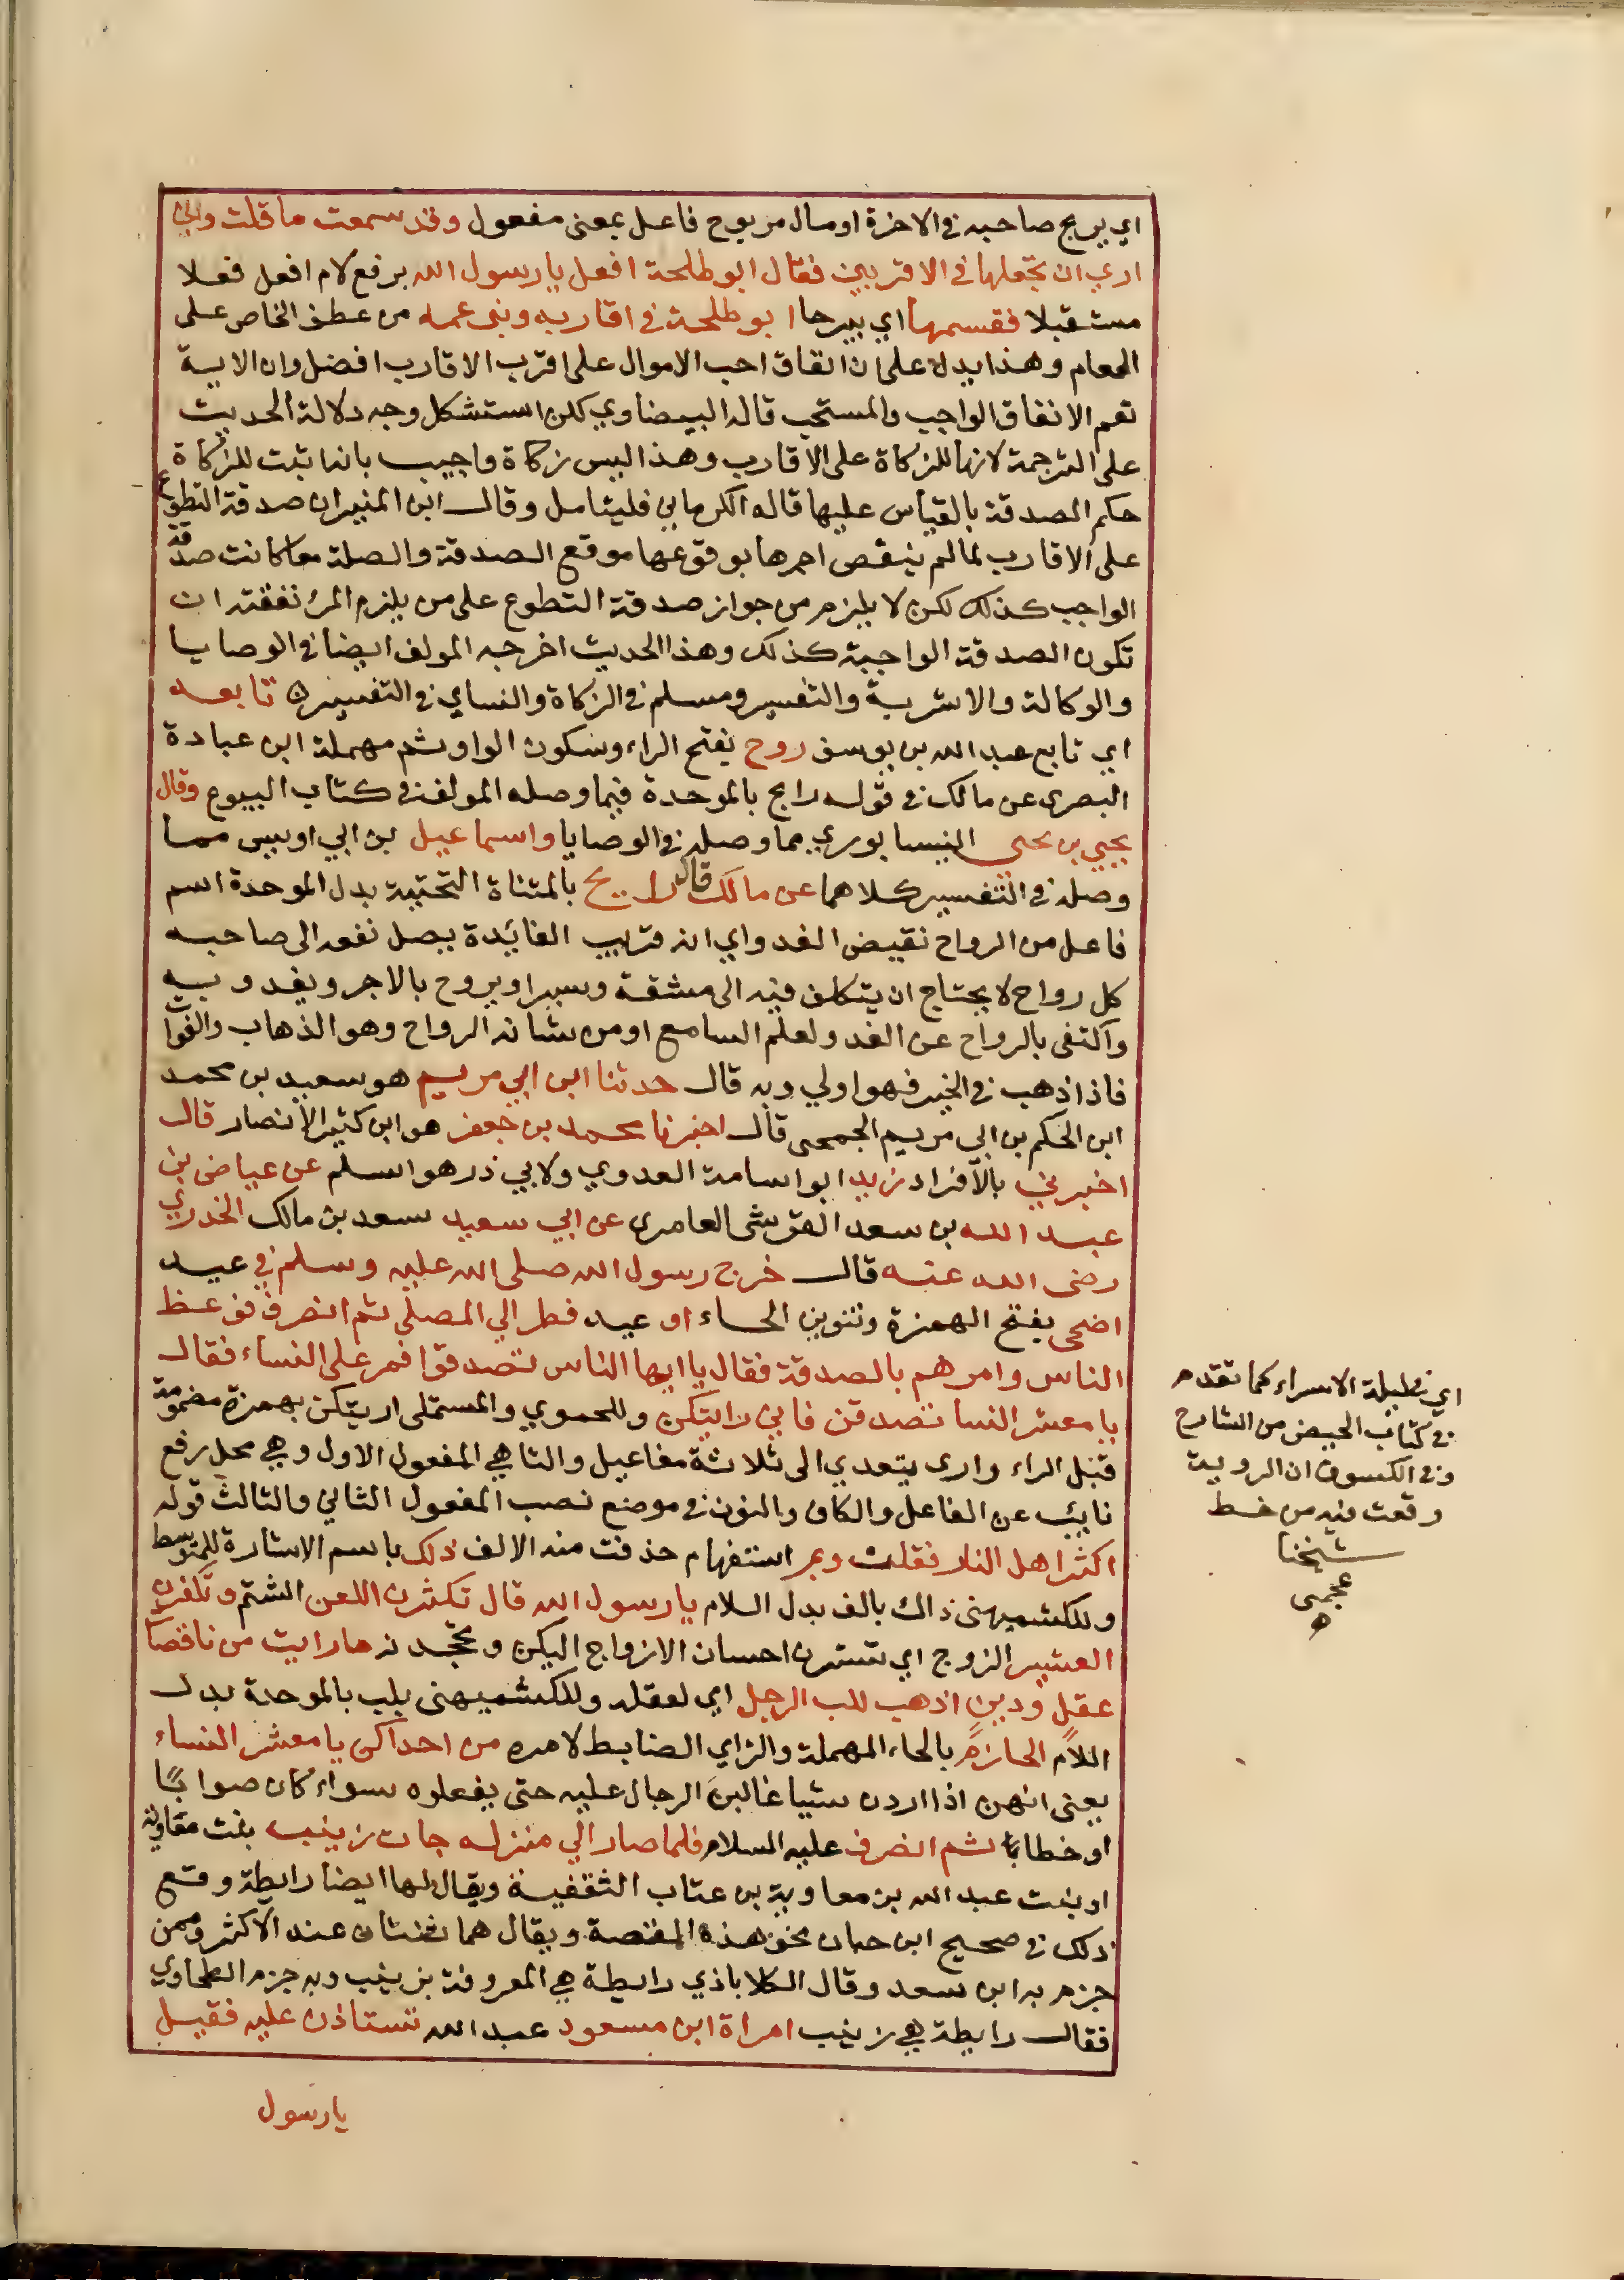 اي يربح صاحبه في الاخرة او مال مربوح فاعل بمعنى مفعول وقد سمعت ما قلت واني
اري ان تجعلها في الاقربين فقال ابو طلحة افعل يا رسول الله برفع لام افعل فعلا
مستقبلا فقسمها اي بيرحا ابو طلحة في اقاربه وبني عمه من عطف الخاص على
العام وهذا يدل على ان انفاق احب الاموال على اقرب الاقارب افضل وان الاية
تعم الانفاق الواجب والمستحب قاله البيضاوي لكن استشكل وجه دلالة الحديث
على الترجمة لانها للزكاة على الاقارب وهذا ليس زكاة واجيب بانه اثبت للزكاة
حكم الصدقة بالقياس عليها قاله الكرماني فليتامل وقال ابن المنير ان صدقة التطوع
على الاقارب لما لم ينقص اجرها بوقوعها موقع الصدقة والصلة معا كانت صدقة
الواجب كذلك لكن لا يلزم من جواز صدقة التطوع على من يلزم المرء نفقته ان
تكون الصدقة الواجبة كذلك وهذا الحديث اخرجه المولف ايضا في الوصايا
والوكالة والاشربة والتفسير ومسلم في الزكاة والنساي في التفسير تابعه
اي تابع عبد الله بن يوسف روح بفتح الراء وسكون الواو ثم مهملة ابن عبادة
البصري عن مالك في قوله رابح بالموحدة فيما وصله المولف في كتاب البيوع وقال
يحيي بن يحيى النيسابوري مما وصله في الوصايا واسماعيل بن ابي اويس مما
وصله في التفسير كلاهما عن مالك قال رايح بالمثناة التحتية بدل الموحدة اسم
فاعل من الرواح نقيض الغدو اي انه قريب الفائدة يصل نفعه الى صاحبه
كل رواح لا يحتاج ان يتكلف فيه الى مشقة وسير او يروح بالاجر ويغدو به
واكتفى بالرواح عن الغدو لعلم السامع او من شانه الرواح وهو الذهاب والفوات
فاذا ذهب في الخير فهو اولي وبه قال حدثنا ابن ابي مريم هو سعيد بن محمد
ابن الحكم بن ابي مريم الجمحى قال اخبرنا محمد بن جعفر هو ابن كثير الانصار قال
اخبرني بالافراد زيد ابو اسامة العدوي ولابي ذر هو اسلم عن عياض بن
عبد الله بن سعد القرشى العامرى عن ابي سعيد سعد بن مالك الخدري
رضى الله عنه قال خرج رسول الله صلى الله عليه وسلم في عيد
اضحى بفتح الهمزة وتنوين الحاء او عيد فطر الي المصلي ثم انصرف فوعظ
الناس وامرهم بالصدقة فقال يا ايها الناس تصدقوا فمر على النساء فقال
يا معشر النسا تصدقن فاني رايتكن وللحموي والمستملى اريتكن بهمزة مضمومة
قبل الراء وارى يتعدي الى ثلاثة مفاعيل والتا هي المفعول الاول وهي محل رفع
نايب عن الفاعل والكاف والنون في موضع نصب المفعول الثاني والثالث قوله
اكثر اهل النار فقلن وبم استفهام حذفت منه الالف ذلك باسم الاشارة للمتوسط
وللكشميهنى ذاك بالف بدل اللام يا رسول الله قال تكثرن اللعن الشتم وتكفرن
العشير الزوج اي تسترن احسان الازواج اليكن وتجحدنه ما رايت من ناقصات
عقل ودين اذهب للب الرجل اي لعقله وللكشميهنى بلب بالموحدة بدل
اللام الحازم بالحاء المهملة والزاي الضابط لامره من احداكن يا معشر النساء
يعنى انهن اذا اردن شيا غالبن الرجال عليه حتى يفعلوه سواء كان صوابا
او خطا ثم انصرف عليه السلام فلما صار الي منزله جات زينب بنت معاوية
او بنت عبد الله بن معاوية بن عتاب الثقفية ويقال لها ايضا رايطة وقع
ذلك في صحيح ابن حبان نحو هذه القصة ويقال هما ثنتان عند الاكثر وممن
جزم به ابن سعد وقال الكلاباذي رايطة هي المعروفة بزينب وبه جزم الطحاوي
فقال رايطة هي زينب امراة ابن مسعود عبد الله تستاذن عليه فقيل
يا رسول
اي في ليلة الاسراء كما تقدم
في كتاب الحيض من الشارح
وفي الكسوف ان الروية
وقعت فيه من خط
شيخنا
عجمى